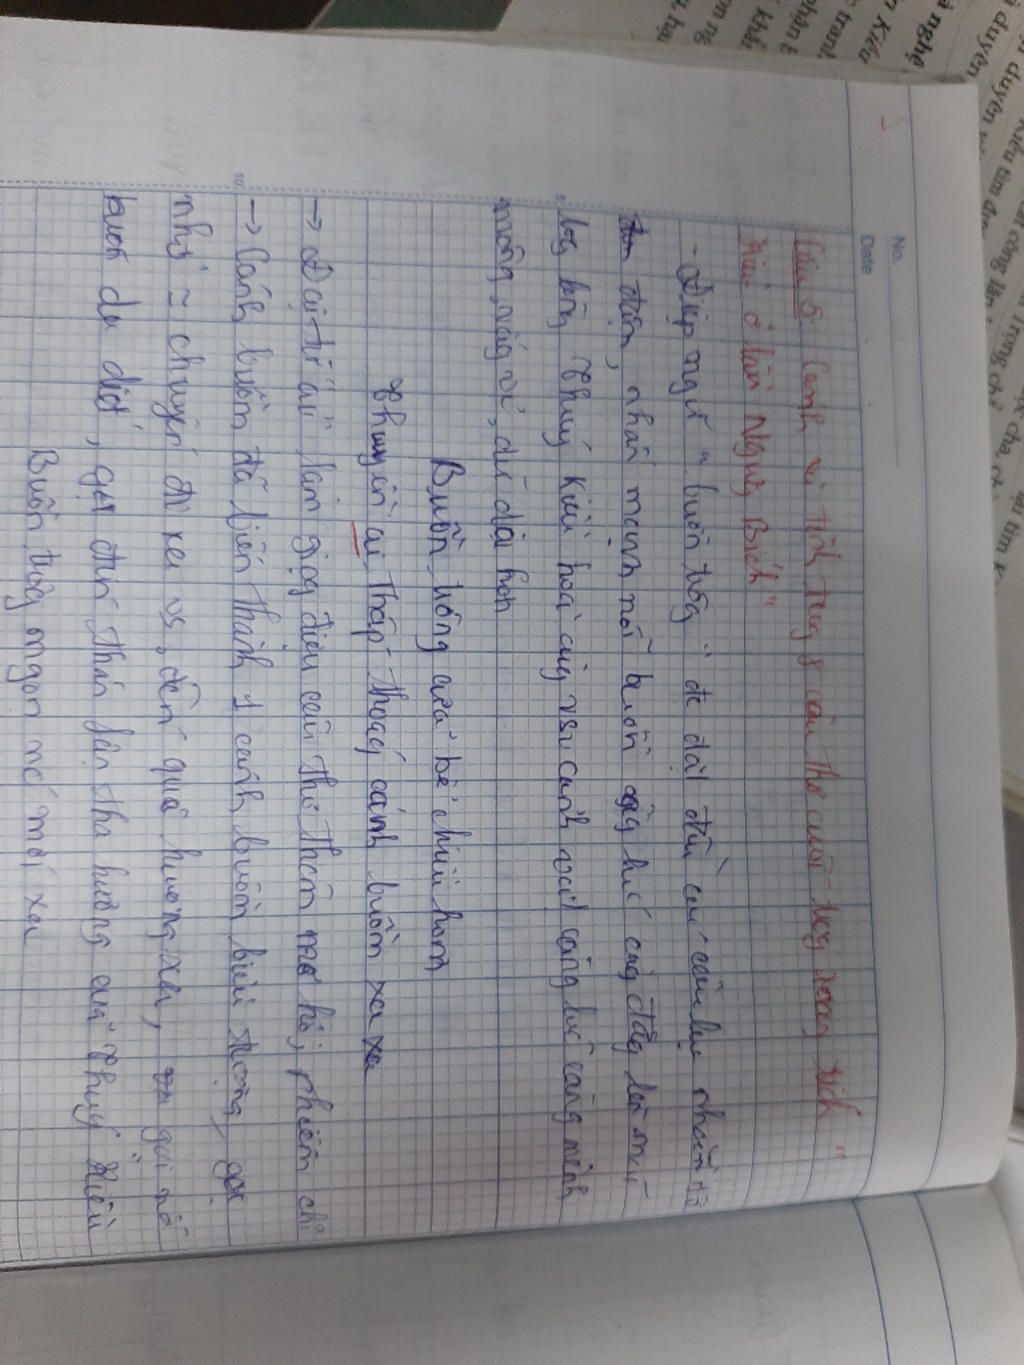 No.
Date
Câu 5 Cảnh và tình trong 8 câu thơ cuối trong đoạn trích "
Kiều ở lầu Ngưng Bích"
- Điệp ngữ " buồn trông " đc đặt đầu các câu lục
điệp, nhấn mạnh nỗi buồn càng lúc càng dâng lên
lòng Thuý Kiều hoà cùng vs cảnh vật càng lúc càng mênh
mông, dữ dội hơn
Buồn trông cửa bể chiều hôm
Thuyền ai thấp thoáng cánh buồm xa xa
→ Đại từ "ai" làm giọng điệu câu thơ thêm mơ hồ, phiếm chỉ
→ Cánh buồm đã biến thành 1 cánh buồm biểu tượng, gợi
nhớ ~ chuyến đi xa vs, đến quê hương xa, gợi nỗi
buồn da diết, gợi đến thân phận tha hương của Thuý Kiều
Buồn trông ngọn nc mới xa